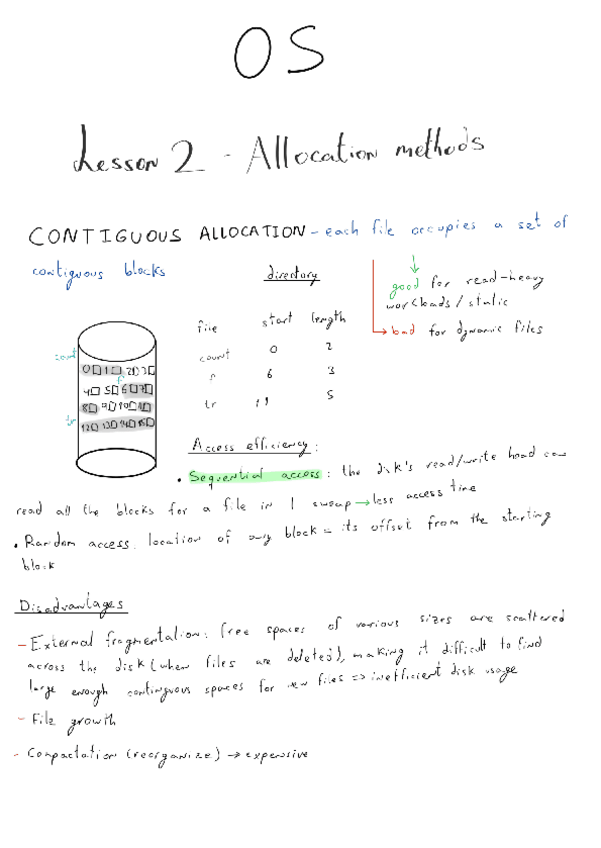 OS
Lesson 2 - Allocation methods
CONTIGUOUS ALLOCATION - each file occupies a set of
contiguous blocks
directory
good for read-heavy
workloads / static
bad for dynamic files
file start length
count 0 2
f 6 3
tr 11 5
count
0 1 2 3
f
4 5 6 7
8 9 10 11
tr
12 13 14 15
Access efficiency:
• Sequential access: the disk's read/write head can
read all the blocks for a file in 1 sweep → less access time
• Random access. location of any block = its offset from the starting
block
Disadvantages
- External fragmentation: free spaces of various sizes are scattered
across the disk (when files are deleted), making it difficult to find
large enough contiguous spaces for new files => inefficient disk usage
- File growth
- Compactation (reorganize) → expensive